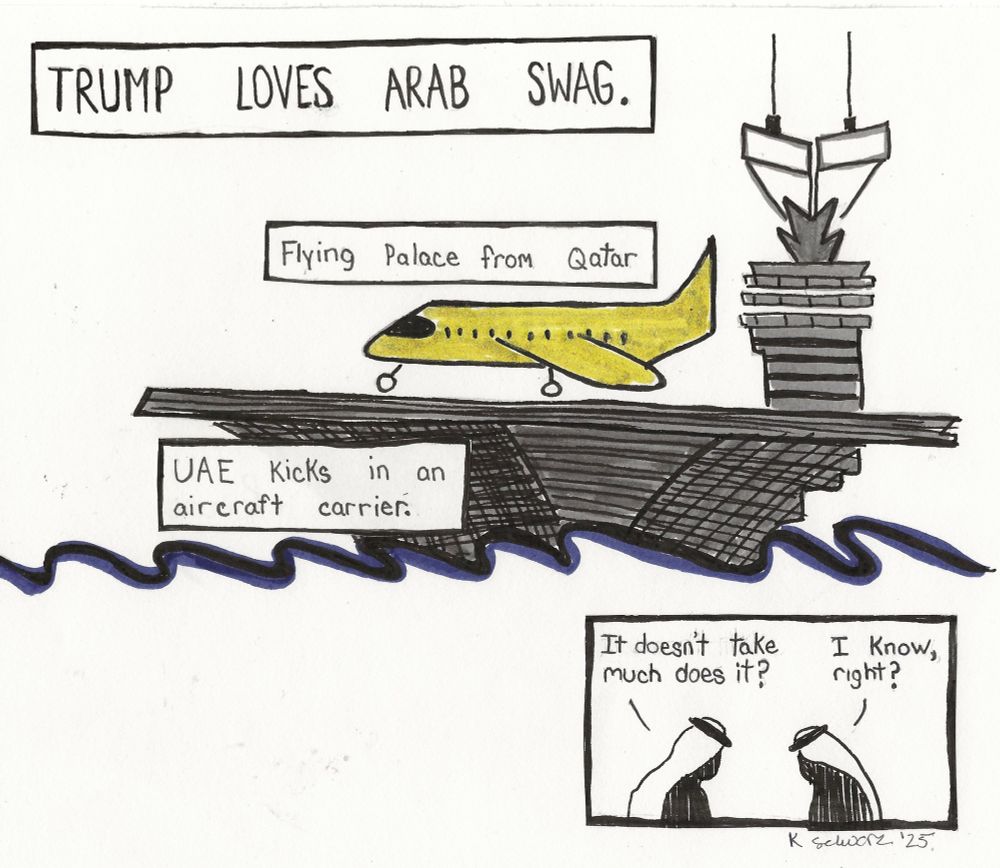 TRUMP LOVES ARAB SWAG.
Flying Palace from Qatar
UAE kicks in an
aircraft carrier.
It doesn't take
much does it?
I know,
right?
K Schwarz '25